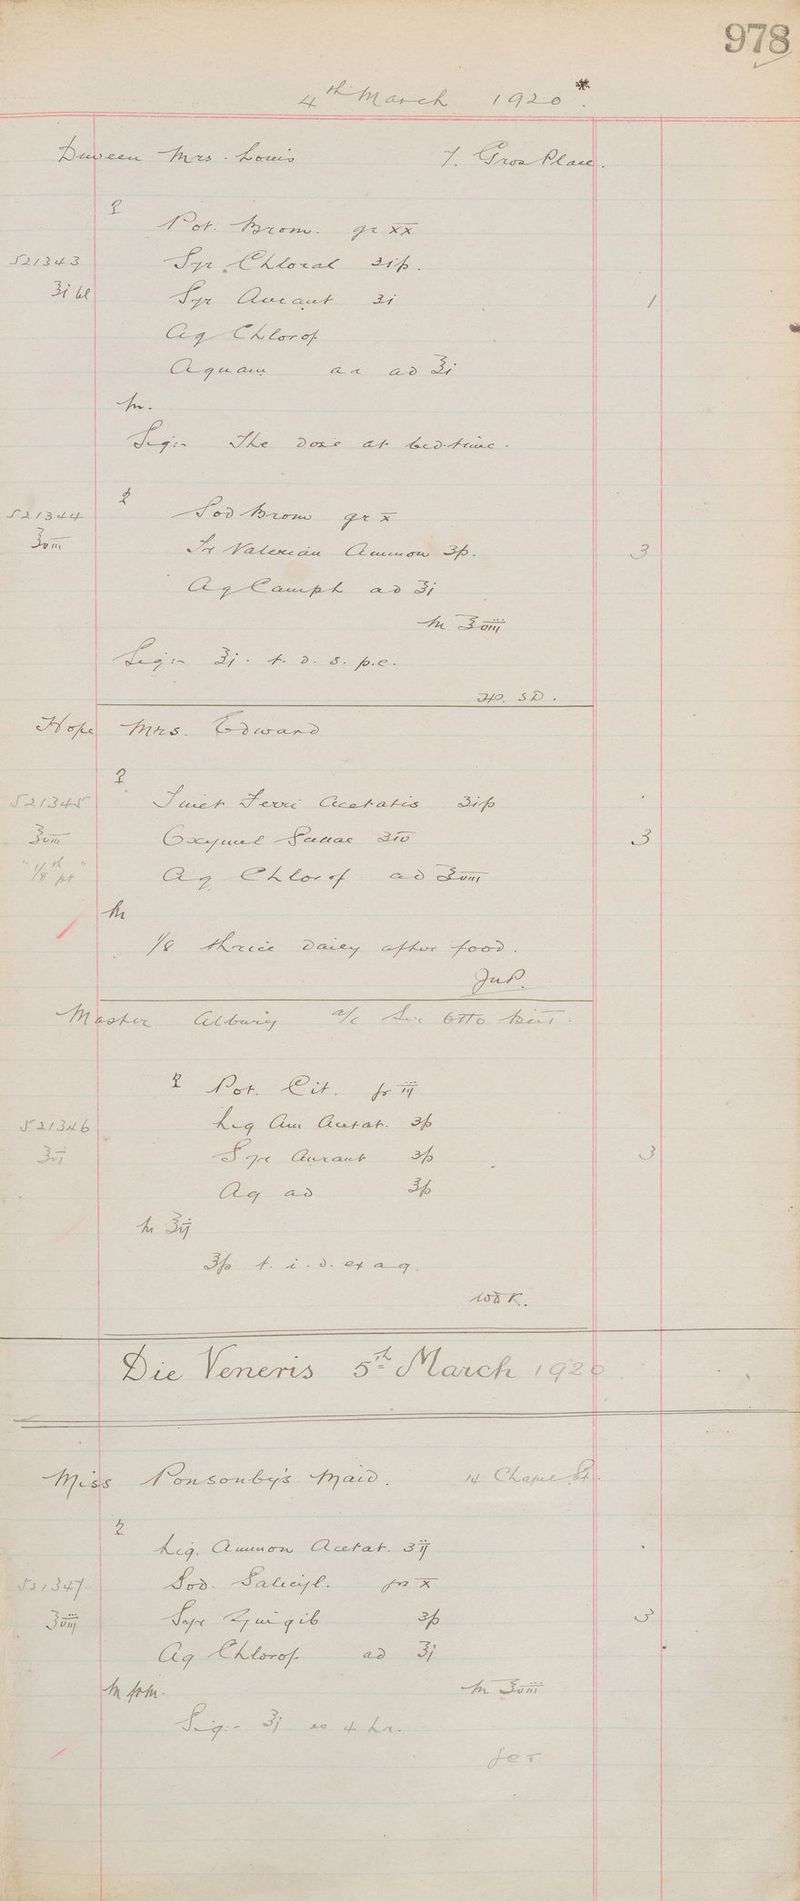 978
4th March 1920 *
Duveen Mrs. Louis 7. Gros Place.
℞
Pot. Brom. gr xx
521343 Syr. Chloral ʒifs.
ʒi bl Syr Aurant ʒi 1
Aq Chlorof
Aquam aa ad ℥i
M.
Sig:- The dose at bedtime.
℞
521344 Sod Brom gr x
℥viii Tr Valerian Ammon ʒfs. 3
Aq Camph ad ℥j
M ℥viij
Sig:- ℥j. t. d. s. p.c.
Hope Mrs. Edward
℞
521345 Tinct Ferri Acetatis ʒifs
℥viii Oxymel Scillae ʒiv 3
"1/8th pt" Aq Chlorof ad ℥viii
M
1/8 thrice daily after food.
Master a/c Sir Otto Beit.
℞ Pot. Cit. gr iij
521346 Liq Am Acetat. ʒfs
℥vj Syr Aurant ʒfs 3
Aq ad ℥fs
M ℥vj
℥fs t. i. d. ex aq.
Die Veneris 5th March 1920
Miss Ponsonby's Maid. 14 Chapel St.
℞
Liq. Ammon Acetat. ʒij
521347 Sod. Salicyl. gr x
℥viij Syr Zingib ʒfs 3
Aq Chlorof ad ℥j
M ℥viii
Sig:- ℥j 4 hr.